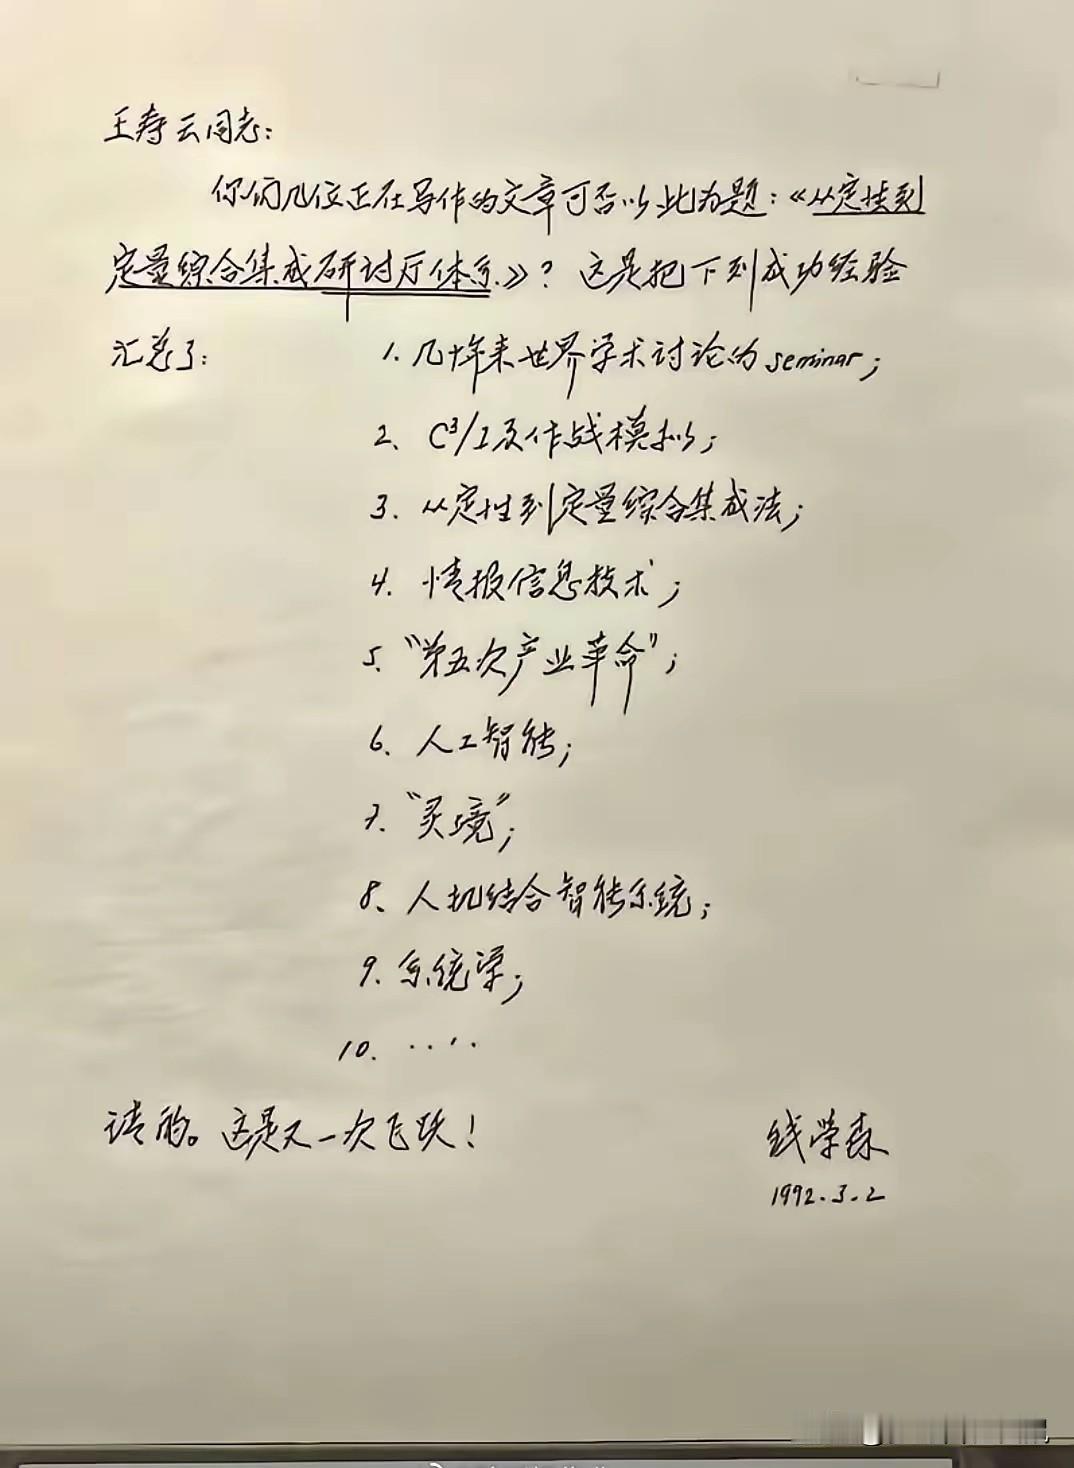 王寿云同志：
你们几位正在写作的文章可否以此为题：《从定性到
定量综合集成研讨厅体系》？这是把下列成功经验
汇总了：1. 几十年来世界学术讨论的seminar；
2、C³/I及作战模拟；
3. 从定性到定量综合集成法；
4. 情报信息技术；
5. “第五次产业革命”；
6、人工智能；
7. “灵境”；
8、人机结合智能系统；
9. 系统学；
10. ·····
请酌。这是又一次飞跃！
钱学森
1992.3.2